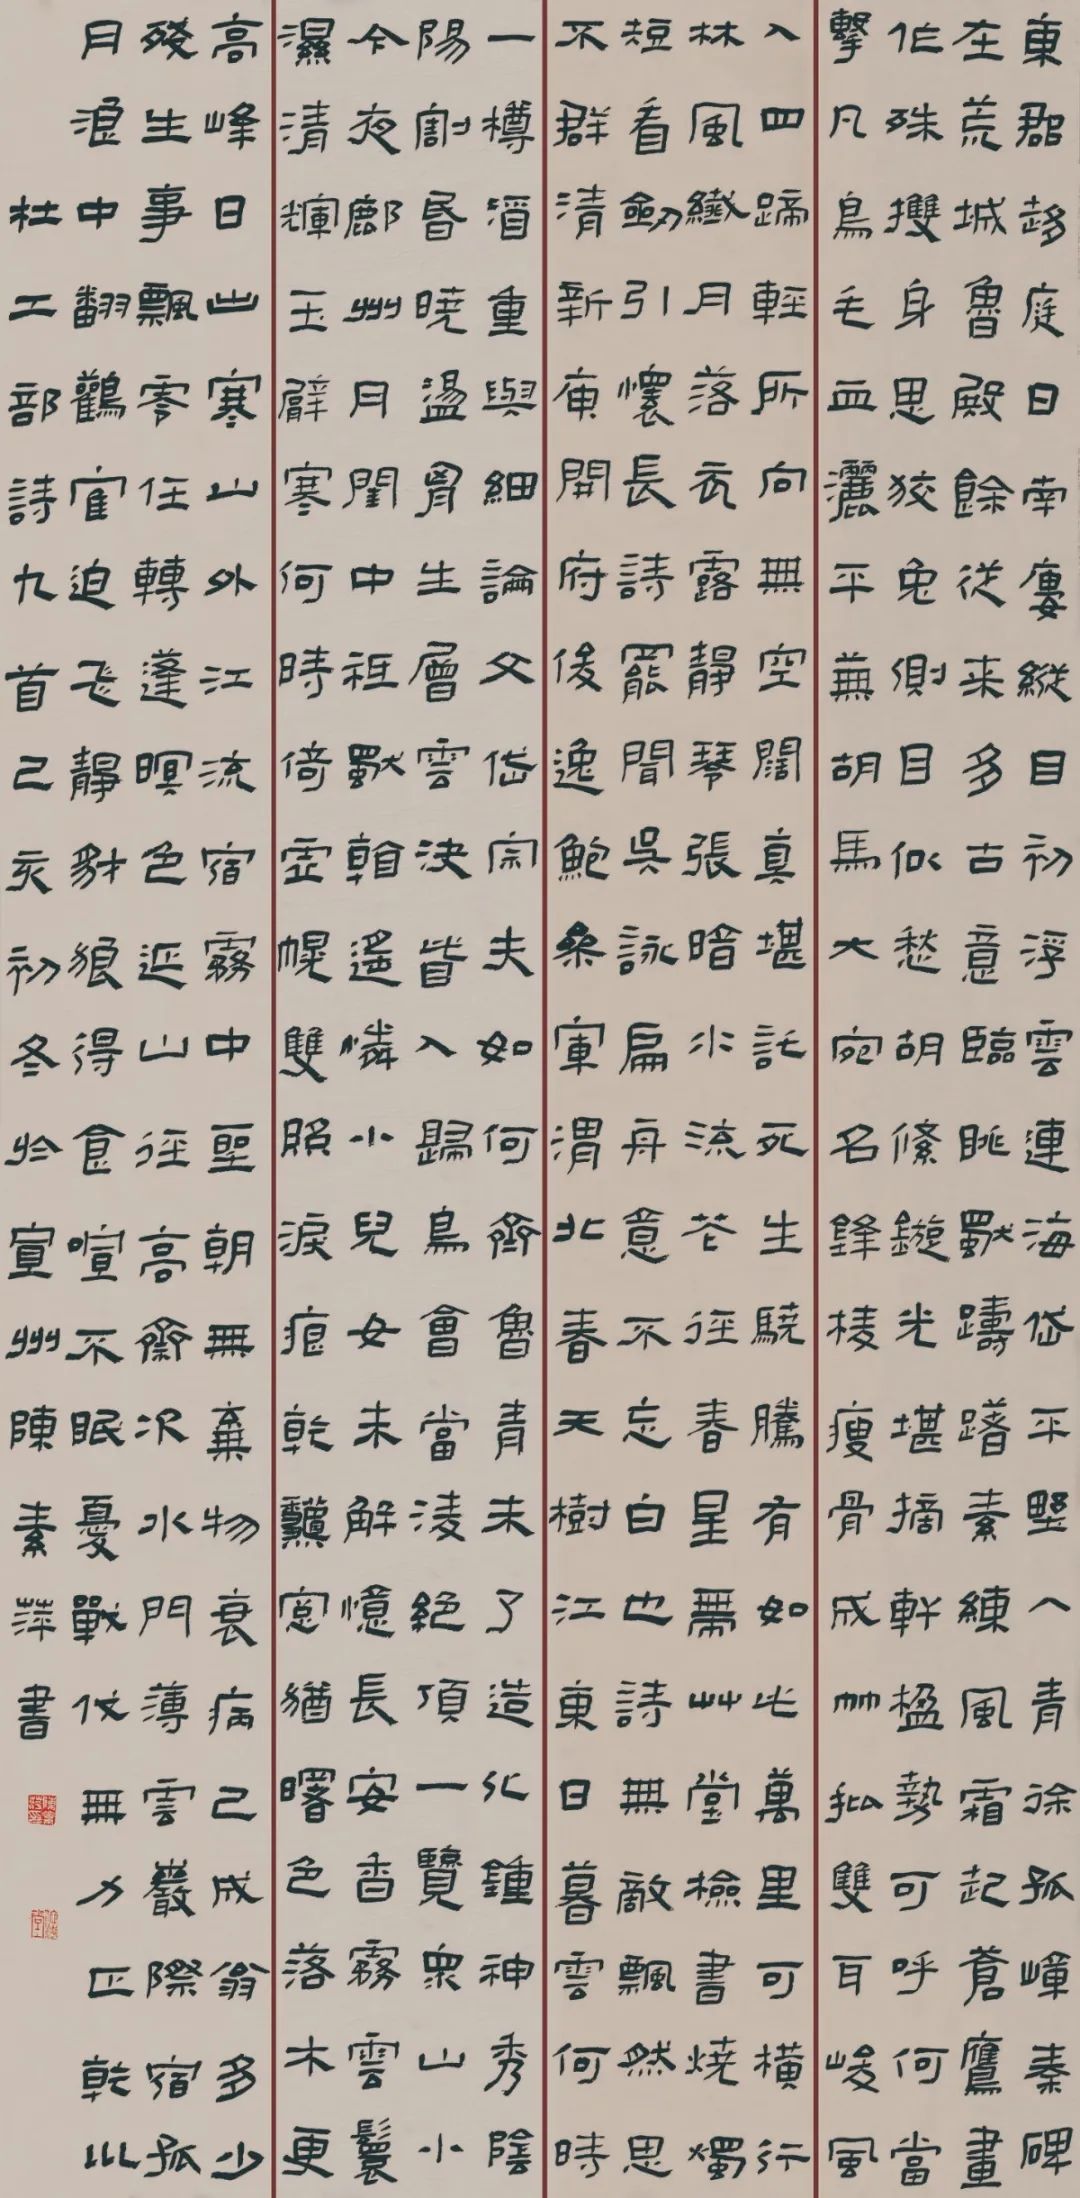 東郡趍庭日南廔縱目初浮雲連海岱平野入青徐孤嶂秦碑
在荒城魯殿餘從来多古意臨眺獨躊躇素練風霜起蒼鷹畫
作殊㩳身思狡兔側目似愁胡絛鏇光堪摘軒楹勢可呼何當
擊凡鳥毛血灑平蕪胡馬大宛名鋒棱瘦骨成竹批雙耳峻風
入四蹄輕所向無空闊真堪託死生驍騰有如此萬里可橫行
林風纖月落衣露靜琴張暗水流花徑春星帶草堂檢書燒燭
短看劍引懷長詩罷聞吳詠扁舟意不忘白也詩無敵飄然思
不群清新庾開府俊逸鮑參軍渭北春天樹江東日暮雲何時
一樽酒重與細論文岱宗夫如何齊魯青未了造化鍾神秀陰
陽割昏曉盪胸生層雲決眥入歸鳥會當淩絕頂一覽眾山小
今夜鄜州月閨中祗獨看遙憐小兒女未解憶長安香霧雲鬟
濕清輝玉臂寒何時倚虛幌雙照淚痕乾驥窓猶曙色落木更
高峰日出寒山外江流宿霧中聖朝無棄物衰病已成翁多少
殘生事飄零任轉蓬暝色延山徑高齋次水門薄雲巖際宿孤
月浪中翻鸛鶴追飛靜豺狼得食喧不眠憂戰伐無力正乾以
杜工部詩九首己亥初冬於宣州陳素萍書